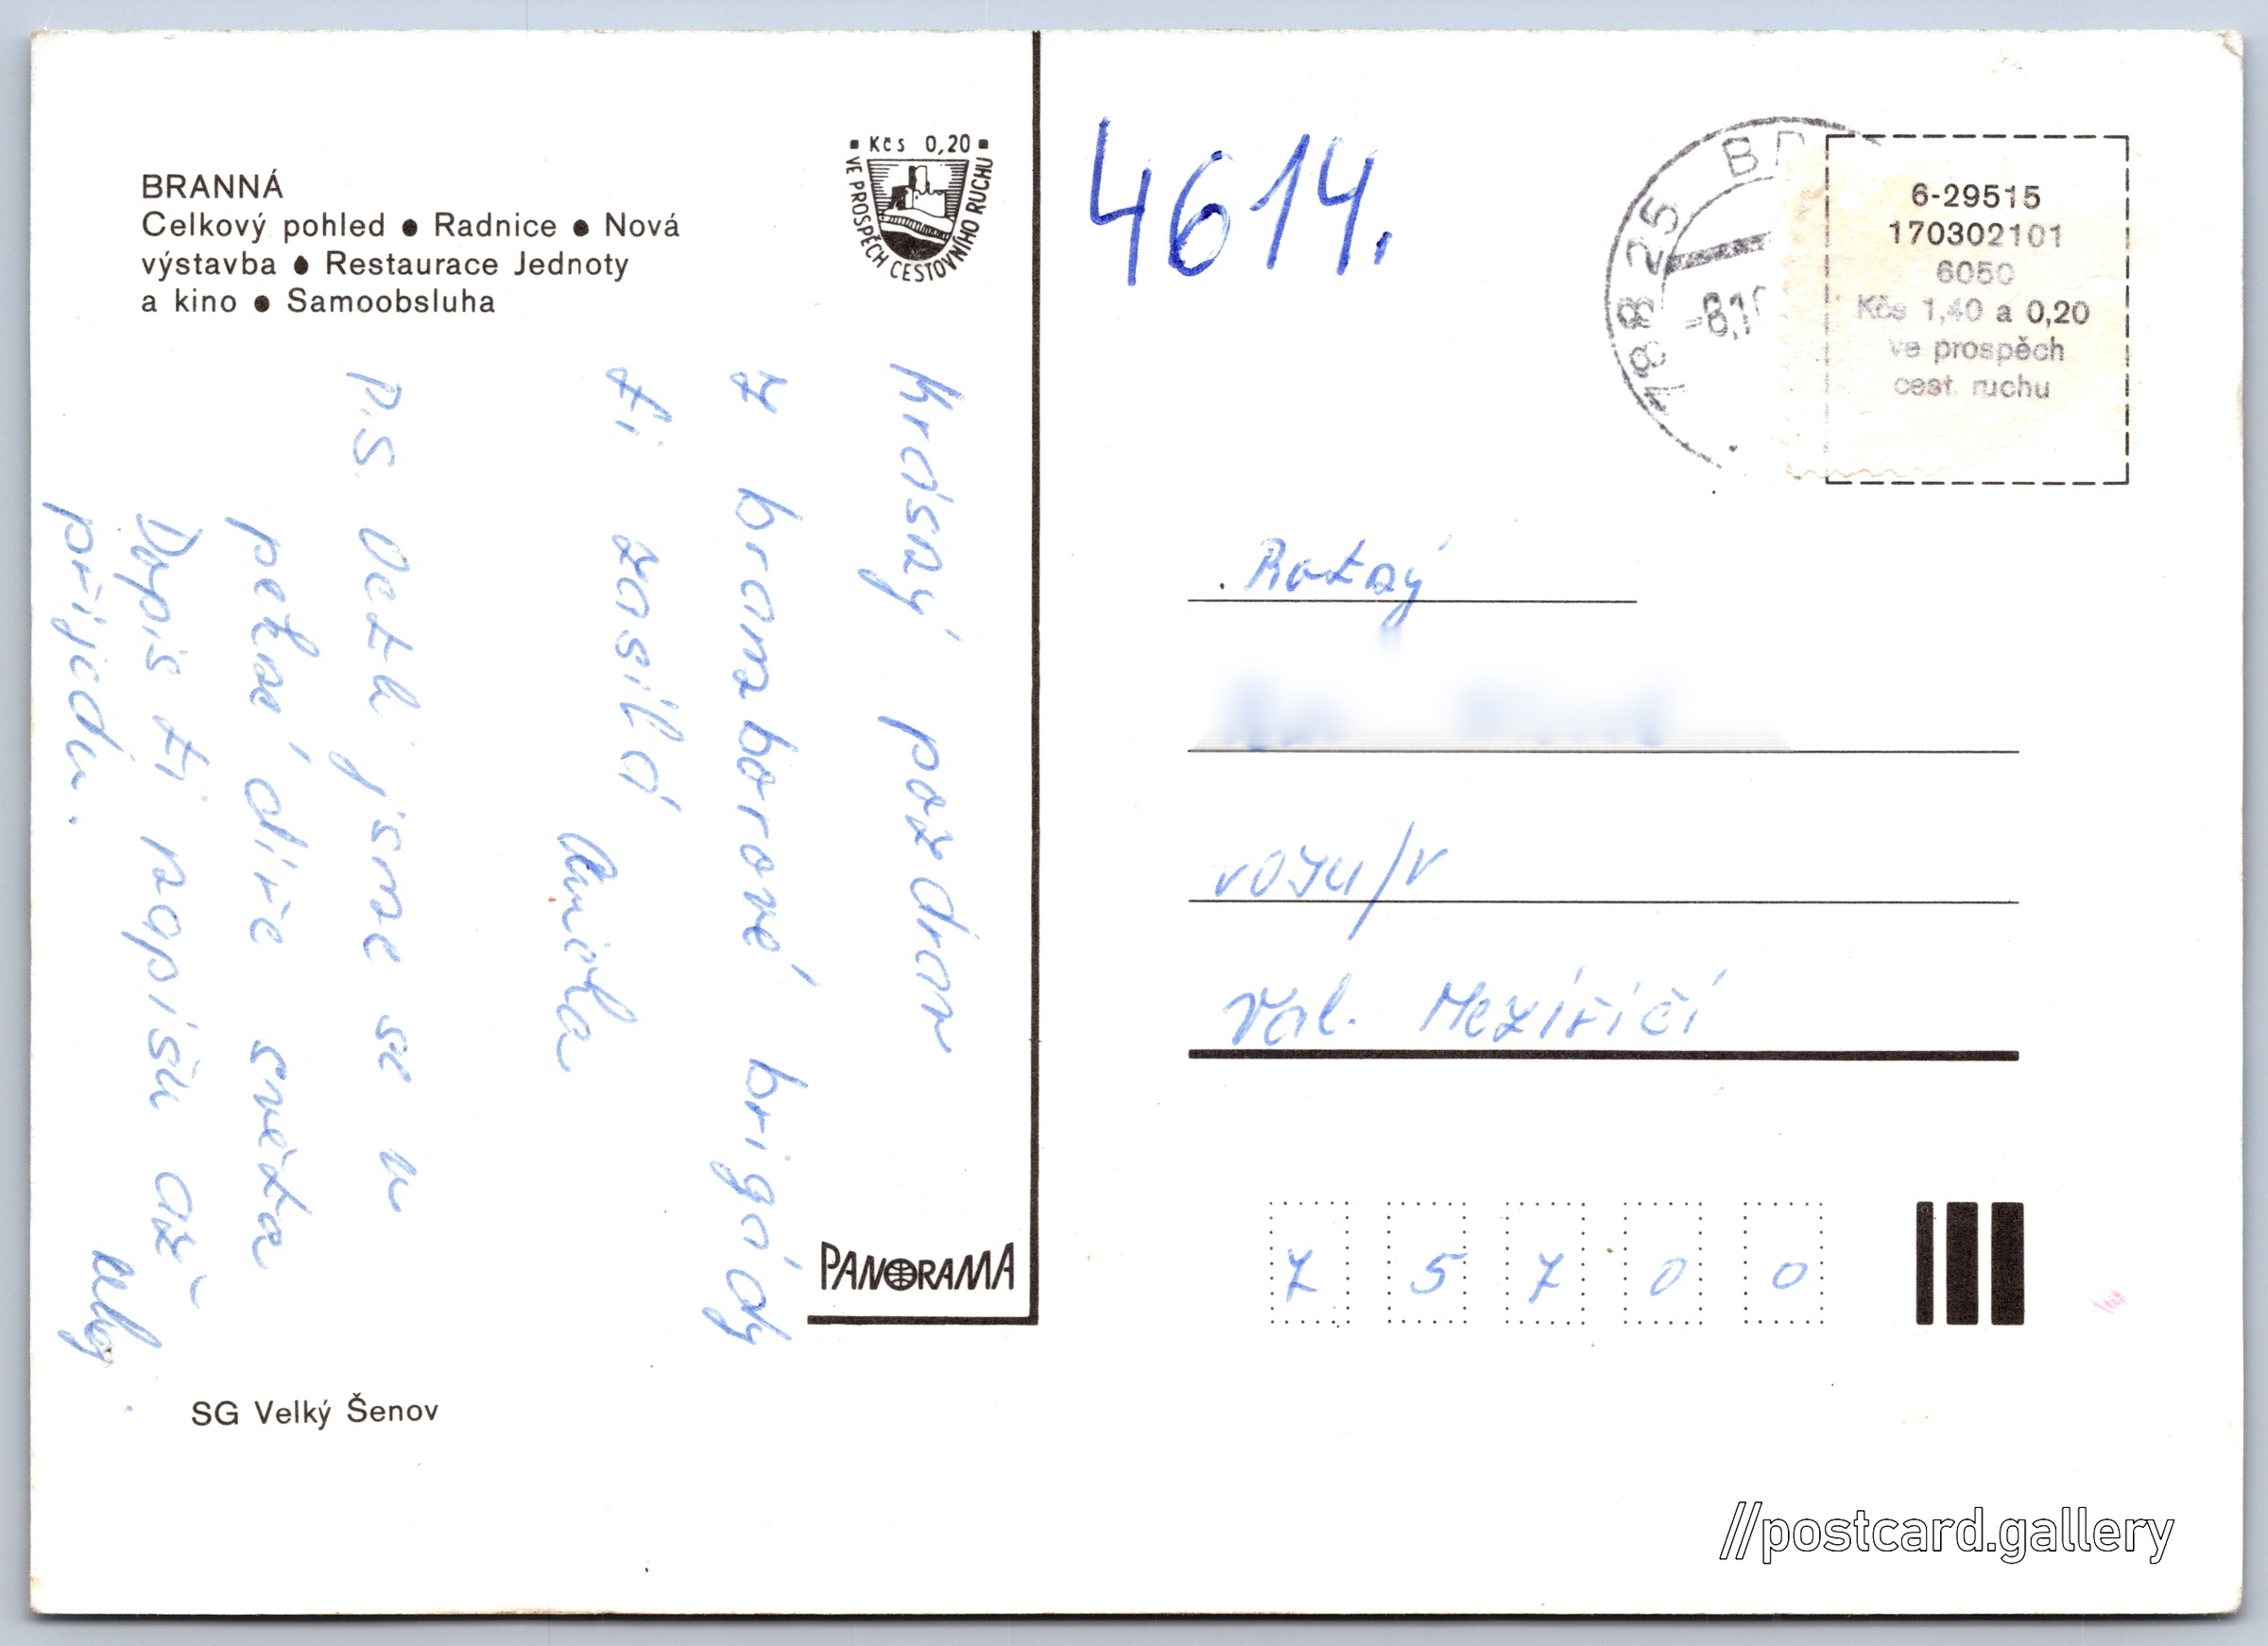 BRANNÁ
Celkový pohled ● Radnice ● Nová
výstavba ● Restaurace Jednoty
a kino ● Samoobsluha
Kčs 0,20
VE PROSPĚCH CESTOVNÍHO RUCHU
Krásný pozdrav
z bramborové brigády
ti zasílá
P.S. Octli jsme se u
pěkné díře světa
Dopis ti napíšu až
přijedu.
Ahoj
PANORAMA
SG Velký Šenov
4614.
788 25
6-29515
170302101
6050
Kčs 1,40 a 0,20
ve prospěch
cest. ruchu
VOJU/V
Val. Meziříčí
7 5 7 0 0
//postcard.gallery